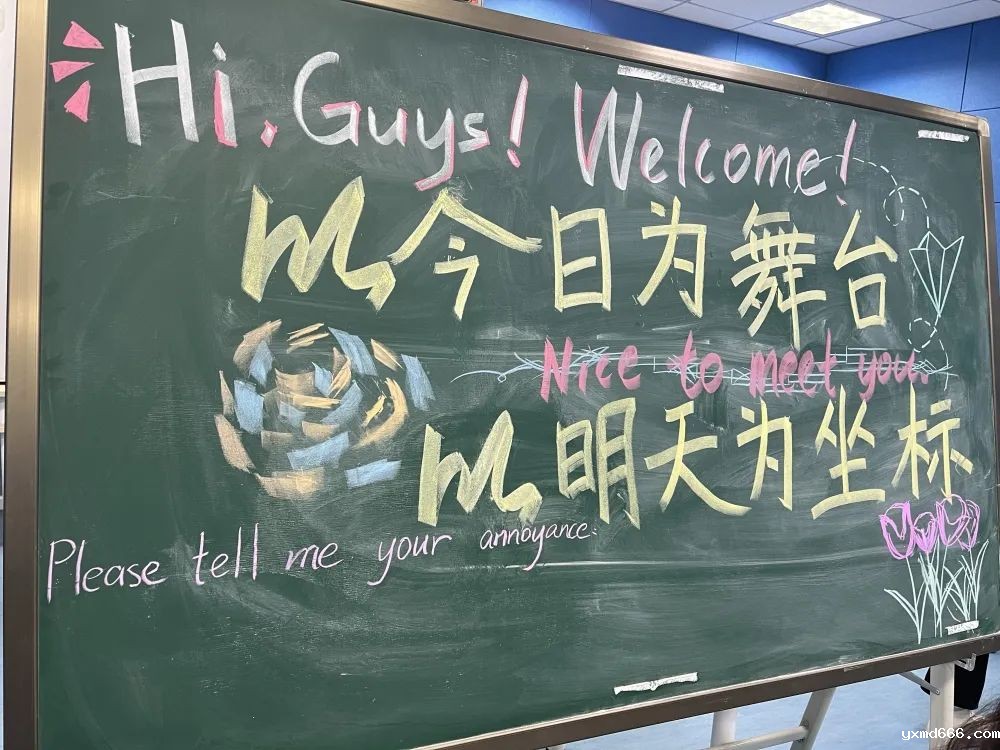 Hi. Guys! Welcome!
以今日为舞台
Nice to meet you.
以明天为坐标
Please tell me your annoyance.
yxmd666.com